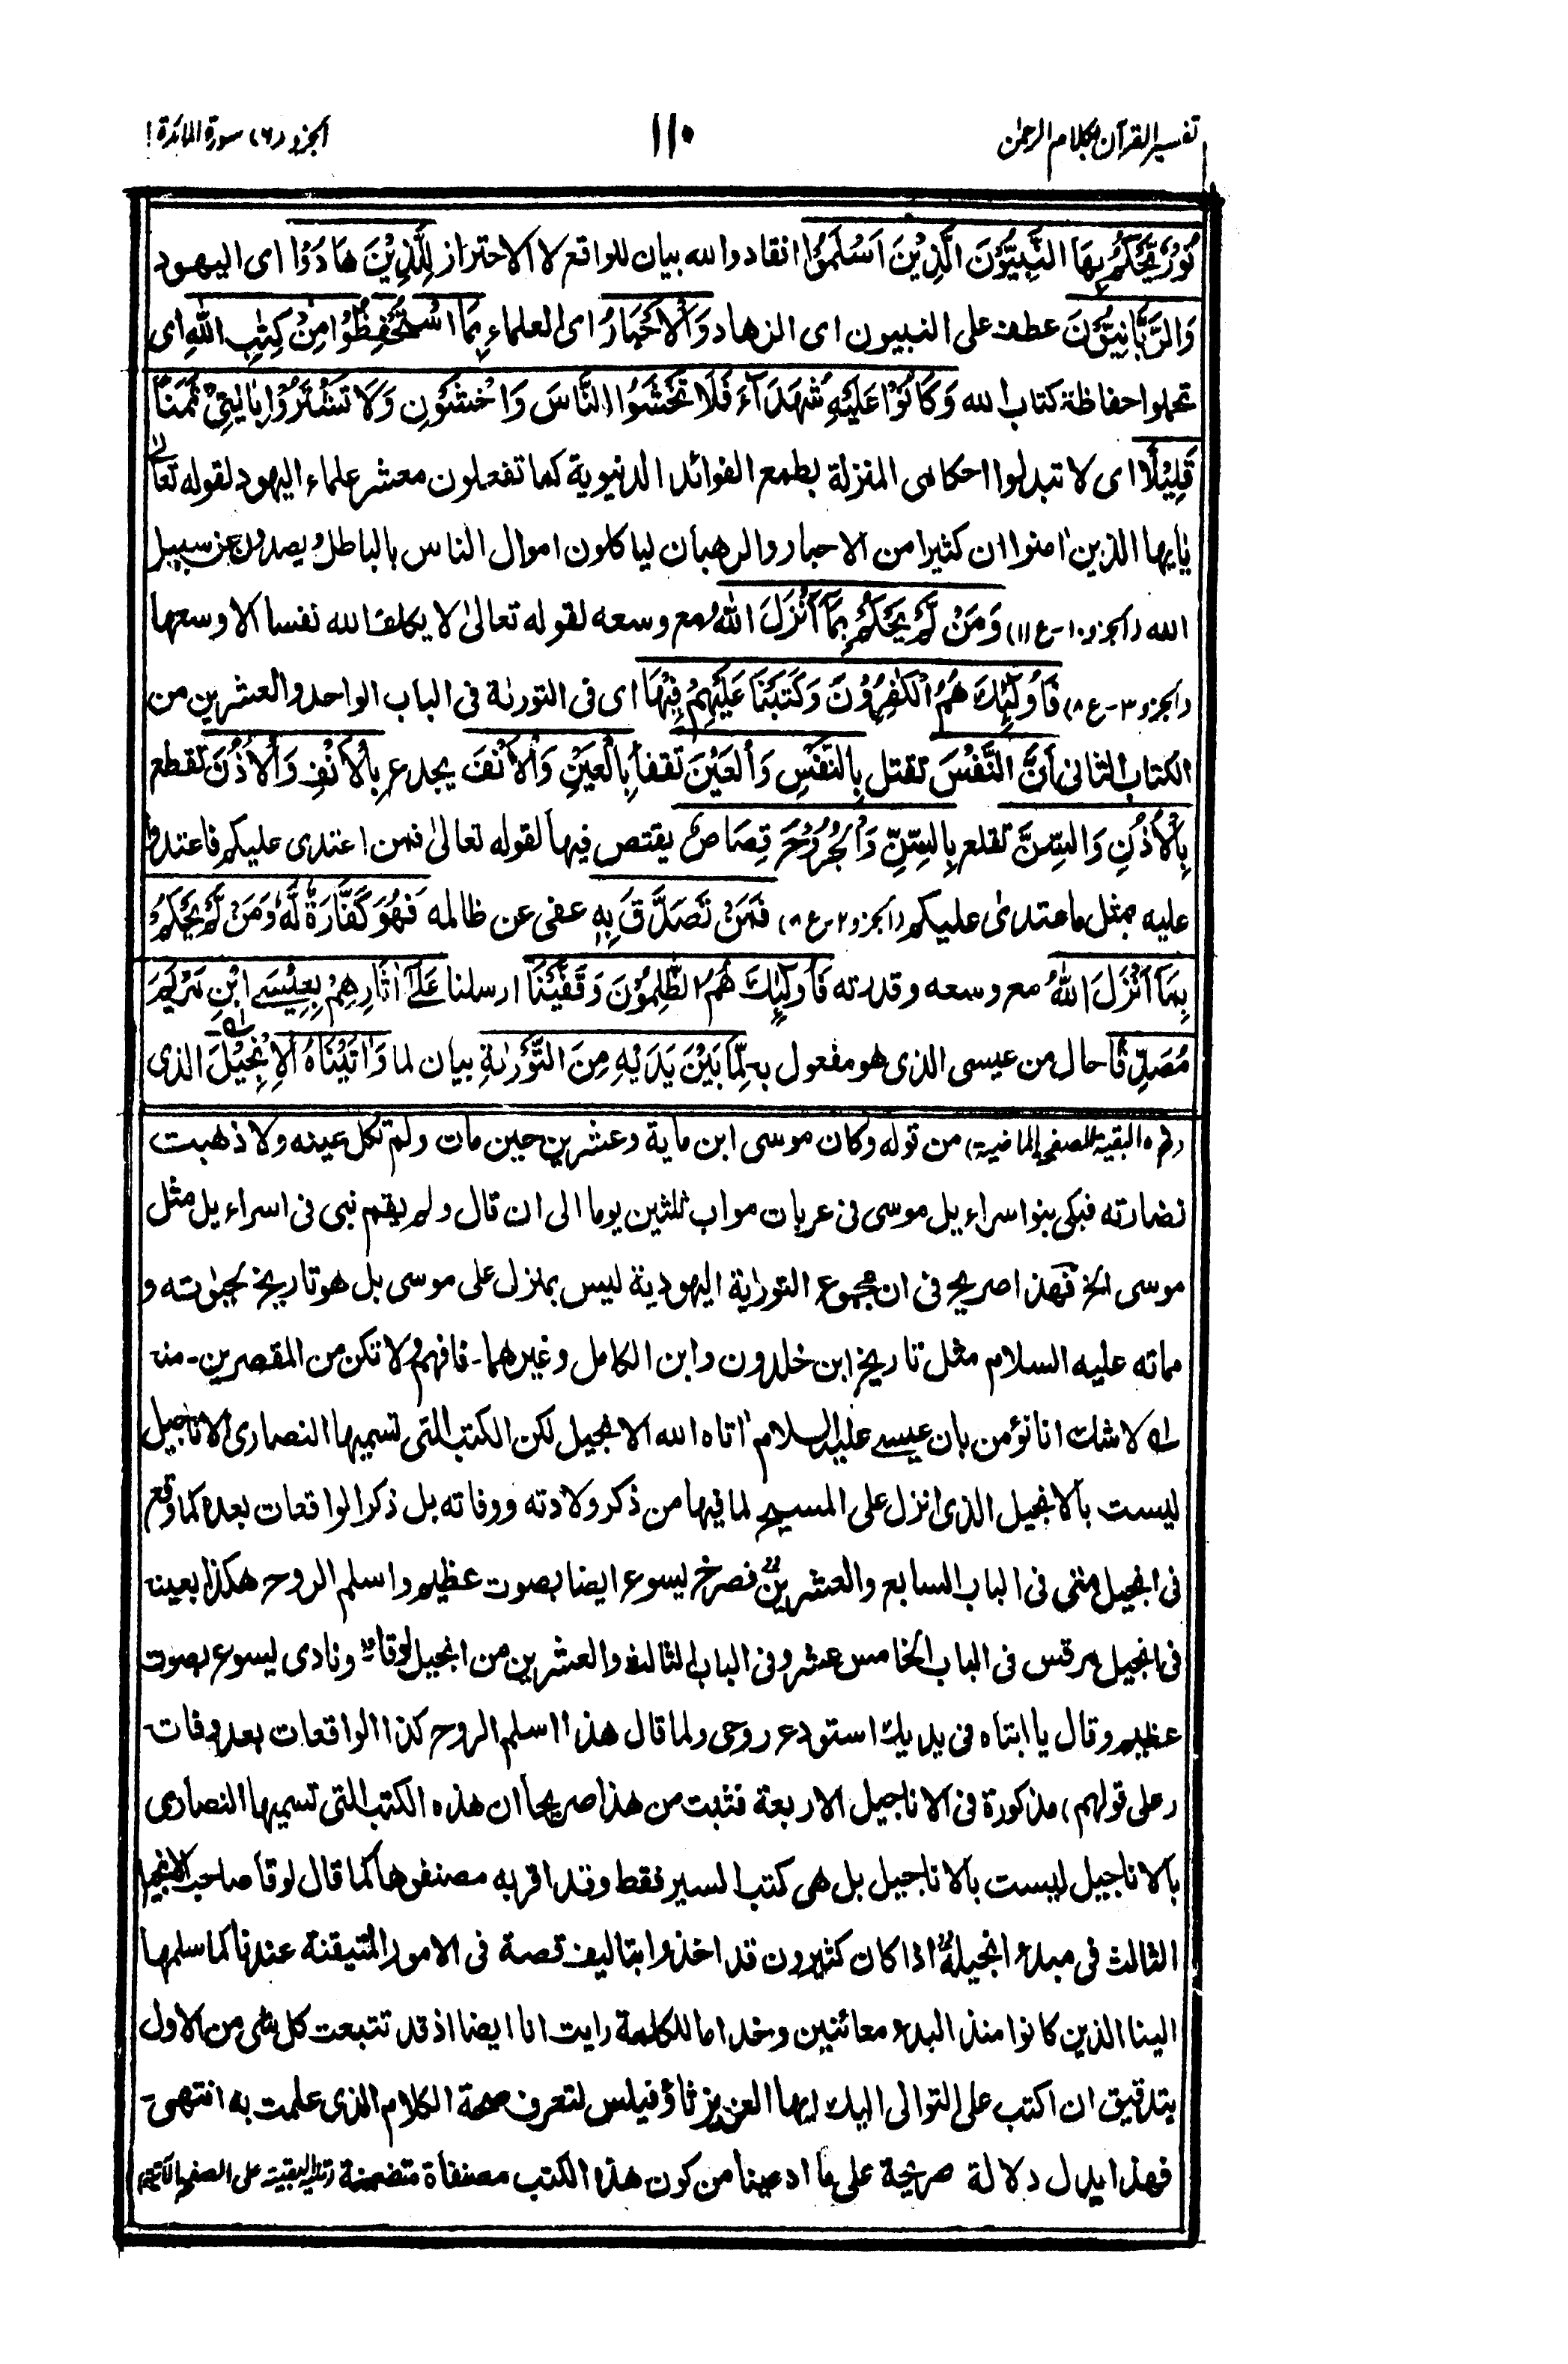 تفسير القرآن بكلام الرحمن
١١٠
الجزو (٦) سورة المائدة !
نُوْرٌ يَحْكُمُ بِهَا النَّبِيُّوْنَ الَّذِيْنَ اَسْلَمُوْا انقادوا لله بيان للواقع لا الاحتراز لِلَّذِيْنَ هَادُوْا اى اليهود
وَالرَّبَّانِيُّوْنَ عطف على النبيون اى الزهاد وَالْاَحْبَارُ اى العلماء بِمَا اسْتُحْفِظُوْا مِنْ كِتٰبِ اللّٰهِ اى
تحملوا حفاظة كتاب الله وَكَانُوْا عَلَيْهِ شُهَدَآءَ فَلَا تَخْشَوُا النَّاسَ وَاخْشَوْنِ وَلَا تَشْتَرُوْا بِاٰيٰتِيْ ثَمَنًا
قَلِيْلًا اى لا تبدلوا احكامى المنزلة بطمع الفوائد الدنيوية كما تفعلون معشر علماء اليهود لقوله تعالى
يٰايها الذين اٰمنوا ان كثيرا من الاحبار والرهبان لياكلون اموال الناس بالباطل ويصدون عن سبيل
الله (الجزو ١٠-ع ١١) وَمَنْ لَّمْ يَحْكُمْ بِمَآ اَنْزَلَ اللّٰهُ مع وسعه لقوله تعالىٰ لا يكلف الله نفسا الا وسعها
(الجزو ٣-ع ٨) فَاُولٰٓئِكَ هُمُ الْكٰفِرُوْنَ وَكَتَبْنَا عَلَيْهِمْ فِيْهَا اى فى التورىٰة فى الباب الواحد والعشرين من
الكتاب الثانى اَنَّ النَّفْسَ تقتل بِالنَّفْسِ وَالْعَيْنَ تفقأ بِالْعَيْنِ وَالْاَنْفَ يجدع بِالْاَنْفِ وَالْاُذُنَ تقطع
بِالْاُذُنِ وَالسِّنَّ تقلع بِالسِّنِّ وَالْجُرُوْحَ قِصَاصٌ يقتص فيها لقوله تعالىٰ فمن اعتدى عليكم فاعتدوا
عليه بمثل ما اعتدىٰ عليكم (الجزو ٢-ع ٨) فَمَنْ تَصَدَّقَ بِهٖ عفى عن ظالمه فَهُوَ كَفَّارَةٌ لَّهٗ وَمَنْ لَّمْ يَحْكُمْ
بِمَآ اَنْزَلَ اللّٰهُ مع وسعه وقدرته فَاُولٰٓئِكَ هُمُ الظّٰلِمُوْنَ وَقَفَّيْنَا ارسلنا عَلٰٓى اٰثَارِهِمْ بِعِيْسَى ابْنِ مَرْيَمَ
مُصَدِّقًا حال من عيسى الذى هو مفعول به لِّمَا بَيْنَ يَدَيْهِ مِنَ التَّوْرٰىةِ بيان لما وَاٰتَيْنَاهُ الْاِنْجِيْلَ الذى
البقية للصفحة الماضية) من قوله وكان موسى ابن ماية وعشرين حين مات ولم تكل عينه ولا ذهبت
نضارته فبكى بنو اسراءيل موسى فى عربات مواب ثلثين يوما الى ان قال ولم يقم نبى فى اسراءيل مثل
موسى الخ فهذا صريح فى ان مجموع التوراية اليهودية ليس بمنزل على موسى بل هو تاريخ لحيوٰته و
مماته عليه السلام مثل تاريخ ابن خلدون وابن الكامل وغيرهما۔ فافهم ولا تكن من المقصرين۔ منه
له لاشك انا نؤمن بان عيسے عليه السلام اٰتاه الله الانجيل لكن الكتب التى تسميها النصارى الاناجيل
ليست بالانجيل الذى انزل على المسيح لما فيها من ذكر ولادته ووفاته بل ذكر الواقعات بعده كما وقع
فى انجيل متى فى الباب السابع والعشرين فصرخ يسوع ايضا بصوت عظيم واسلم الروح هكذا بعينه
فى انجيل مرقس فى الباب الخامس عشر وفى الباب الثالث والعشرين من انجيل لوقا ونادى يسوع بصوت
عظيم وقال يا ابتاه فى يديك استودع روحى ولما قال هذا اسلم الروح كذا الواقعات بعد وفاته
(على قولهم) مذكورة فى الاناجيل الاربعة فثبت من هذا صريحا ان هذه الكتب التى تسميها النصارى
بالاناجيل ليست بالاناجيل بل هى كتب السير فقط وقد اقر به مصنفوها كما قال لوقا صاحب الانجيل
الثالث فى مبدء انجيله اذا كان كثيرون قد اخذوا بتاليف قصة فى الامور المتيقنة عندنا كما سلمها
الينا الذين كانوا منذ البدء معائنين وخداما للكلمة رايت انا ايضا اذ قد تتبعت كل شى من الاول
بتدقيق ان اكتب على التوالى اليك ايها العزيز ثاؤفيلس لتعرف صحة الكلام الذى علمت به انتهى۔
فهذا يدل دلالة صريحة على ما ادعينا من كون هذه الكتب مصنفاة متضمنة البقية على الصفحة الآتية)